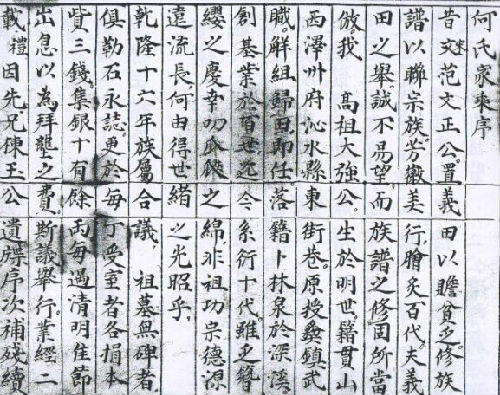 何氏家乘序
昔范文正公。置義田以贍貧乏。修族
譜以聯宗族。芳徽美行。膾炙百代。夫義
田之舉。誠不易望。而族譜之修。固所當
倣。我 高祖大強公。生於明世。籍貫山
西澤州府沁水縣東街巷。原授彝鎮武
職。解組歸田。即任落籍。卜林泉於深溪。
創基業於百世。迄今系衍十代。雖乏簪
纓之慶。幸叨瓜瓞之綿。非祖功宗德。源
遠流長。何由得世緒之光昭乎。
乾隆十六年。族屬合議 祖墓無碑者。
俱勒石永誌。更於每丁受室者各捐本
貲三錢。集銀十有餘両。每過清明佳節
出息以為拜壟之費。斯議舉行。業經二
載。禮因先兄棟玉公遺牒。序次補殘續